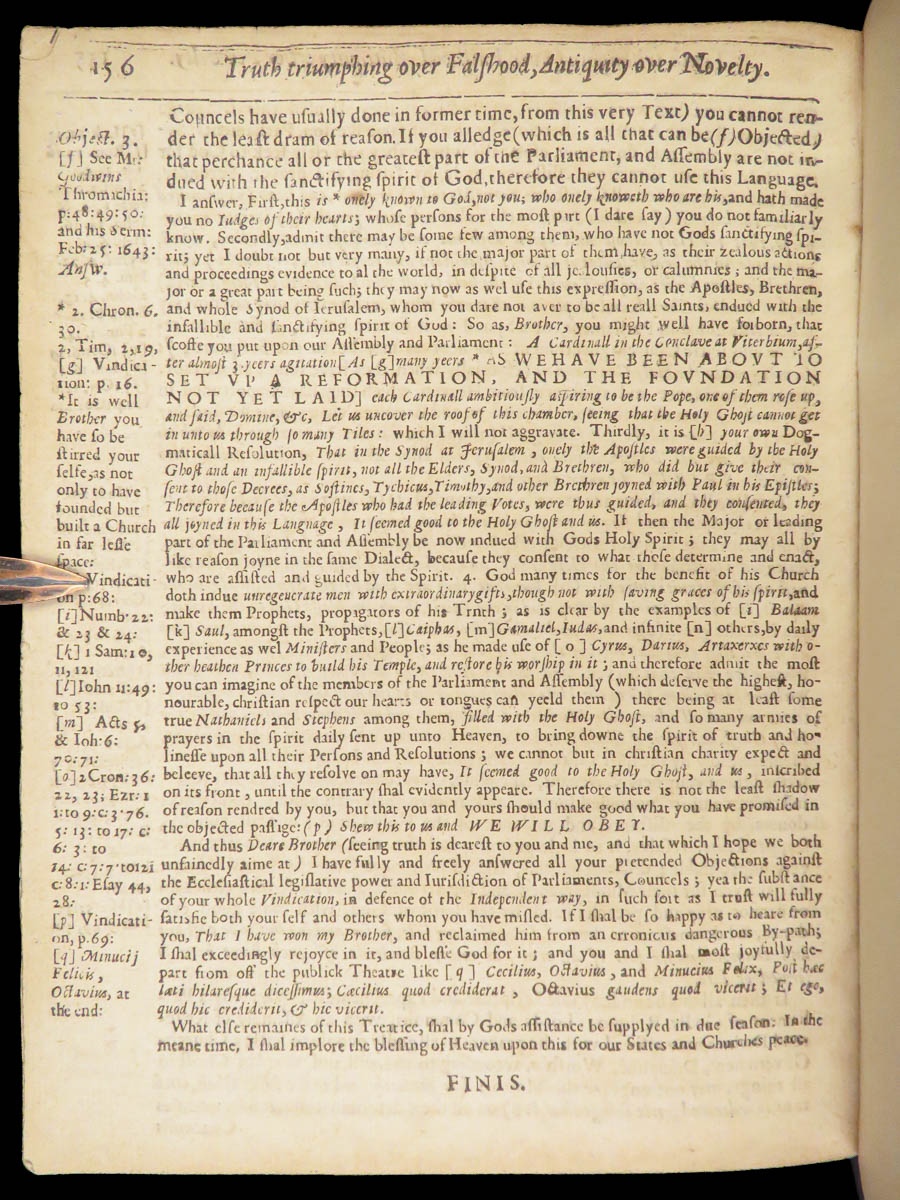 156 Truth triumphing over Falſhood, Antiquity over Novelty.
Councels have uſually done in former time, from this very Text) you cannot ren-
der the leaſt dram of reaſon. If you alledge (which is all that can be (f) Objected)
that perchance all or the greateſt part of the Parliament, and Aſſembly are not in-
dued with the ſanctifying ſpirit of God, therefore they cannot uſe this Language.
I anſwer, Firſt, this is * onely known to God, not you; who onely knoweth who are his, and hath made
you no Iudges of their hearts; whoſe perſons for the moſt part (I dare ſay) you do not familiarly
know. Secondly, admit there may be ſome few among them, who have not Gods ſanctifying ſpi-
rit; yet I doubt not but very many, if not the major part of them have, as their zealous actions
and proceedings evidence to al the world, in deſpite of all jealouſies, or calumnies; and the ma-
jor or a great part being ſuch; they may now as wel uſe this expreſſion, as the Apoſtles, Brethren,
and whole Synod of Ieruſalem, whom you dare not aver to be all reall Saints, endued with the
infallible and ſanctifying ſpirit of God: So as, Brother, you might well have forborn, that
ſcoffe you put upon our Aſſembly and Parliament: A Cardinall in the Conclave at Viterbium, af-
ter almoſt 3. yeers agitation [As [g] many yeers * AS WE HAVE BEEN ABOVT TO
SET VP A REFORMATION, AND THE FOVNDATION
NOT YET LAID] each Cardinall ambitiouſly aſpiring to be the Pope, one of them roſe up,
and ſaid, Domine, &c, Let us uncover the roof of this chamber, ſeeing that the Holy Ghoſt cannot get
in unto us through ſo many Tiles: which I will not aggravate. Thirdly, it is [h] your own Dog-
maticall Reſolution, That in the Synod at Jeruſalem, onely the Apoſtles were guided by the Holy
Ghoſt and an infallible ſpirit, not all the Elders, Synod, and Brethren, who did but give their con-
ſent to thoſe Decrees, as Soſtines, Tychicus, Timothy, and other Brethren joyned with Paul in his Epiſtles;
Therefore becauſe the Apoſtles who had the leading Votes, were thus guided, and they conſented, they
all joyned in this Language, It ſeemed good to the Holy Ghoſt and us. If then the Major or leading
part of the Parliament and Aſſembly be now indued with Gods Holy Spirit; they may all by
like reaſon joyne in the ſame Dialect, becauſe they conſent to what theſe determine and enact,
who are aſſiſted and guided by the Spirit. 4. God many times for the benefit of his Church
doth indue unregenerate men with extraordinary gifts, though not with ſaving graces of his ſpirit, and
make them Prophets, propagators of his Trnth; as is clear by the examples of [i] Balaam
[k] Saul, amongſt the Prophets, [l] Caiphas, [m] Gamaliel, Iudas, and infinite [n] others, by daily
experience as wel Miniſters and People; as he made uſe of [o] Cyrus, Darius, Artaxerxes with o-
ther heathen Princes to build his Temple, and reſtore his worſhip in it; and therefore admit the moſt
you can imagine of the members of the Parliament and Aſſembly (which deſerve the higheſt, ho-
nourable, chriſtian reſpect our hearts or tongues can yeeld them) there being at leaſt ſome
true Nathaniels and Stephens among them, filled with the Holy Ghoſt, and ſo many armies of
prayers in the ſpirit daily ſent up unto Heaven, to bring downe the ſpirit of truth and ho-
lineſſe upon all their Perſons and Reſolutions; we cannot but in chriſtian charity expect and
beleeve, that all they reſolve on may have, It ſeemed good to the Holy Ghoſt, and us, inſcribed
on its front, until the contrary ſhal evidently appeare. Therefore there is not the leaſt ſhadow
of reaſon rendred by you, but that you and yours ſhould make good what you have promiſed in
the objected paſſage: (p) Shew this to us and WE WILL OBEY.
And thus Deare Brother (ſeeing truth is deareſt to you and me, and that which I hope we both
unfainedly aime at) I have fully and freely anſwered all your pretended Objections againſt
the Eccleſiaſtical legiſlative power and Iuriſdiction of Parliaments, Councels; yea the ſubſtance
of your whole Vindication, in defence of the Independent way, in ſuch ſort as I truſt will fully
ſatisfie both your ſelf and others whom you have miſled. If I ſhal be ſo happy as to heare from
you, That I have won my Brother, and reclaimed him from an erronious dangerous By-path;
I ſhal exceedingly rejoyce in it, and bleſſe God for it; and you and I ſhal moſt joyfully de-
part from off the publick Theatre like [q] Cecilius, Octavius, and Minucius Felix, Poſt hæc
læti hilareſque diceſſimus; Cæcilius quod crediderat, Octavius gaudens quod vicerit; Et ego,
quod hic crediderit, & hic vicerit.
What elſe remaines of this Treatice, ſhal by Gods aſſiſtance be ſupplyed in due ſeaſon: In the
meane time, I ſhal implore the bleſſing of Heaven upon this for our States and Churches peace.
FINIS.
Object. 3.
[f] See Mr:
Goodwins
Thromachia:
p:48:49:50:
and his Serm:
Feb: 25: 1643:
Anſw.
* 2. Chron. 6.
30.
2, Tim, 2,19,
[g] Vindica-
tion: p. 16.
*It is well
Brother you
have ſo be
ſtirred your
ſelfe, as not
only to have
founded but
built a Church
in far leſſe
ſpace:
Vindicati-
on p:68:
[i] Numb: 22:
& 23 & 24:
[k] 1 Sam: 10,
11, 121
[l] Iohn 11:49:
to 53:
[m] Acts 5,
& Ioh: 6:
70: 71:
[o] 2 Cron: 36:
22, 23; Ezr: 1
1: to 9: c: 3. 76.
5: 13: to 17: c:
6: 3: to
14: c: 7: 7. to 121
c: 8: 1: Eſay 44,
28:
[p] Vindicati-
on, p. 69:
[q] Minucij
Felicis,
Octavius, at
the end: